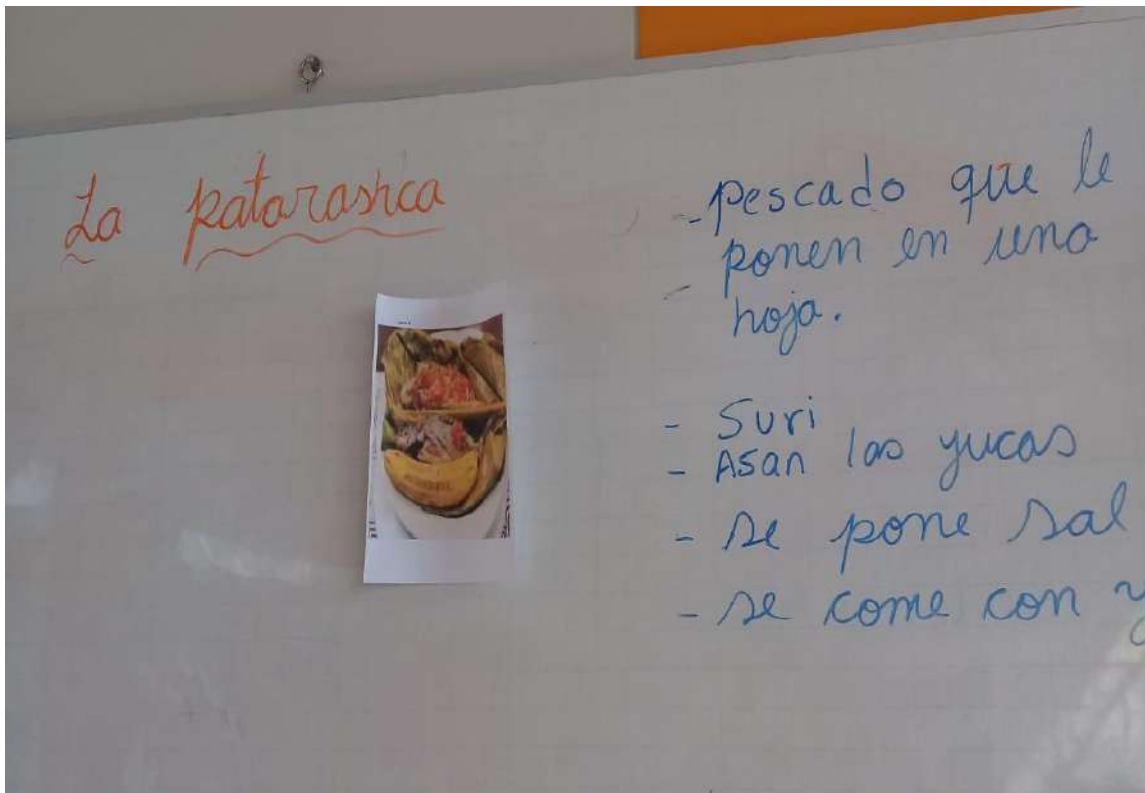 La patarashca
- pescado que le
ponen en una
- hoja.
- Suri
- Asan las yucas
- se pone sal
- se come con y